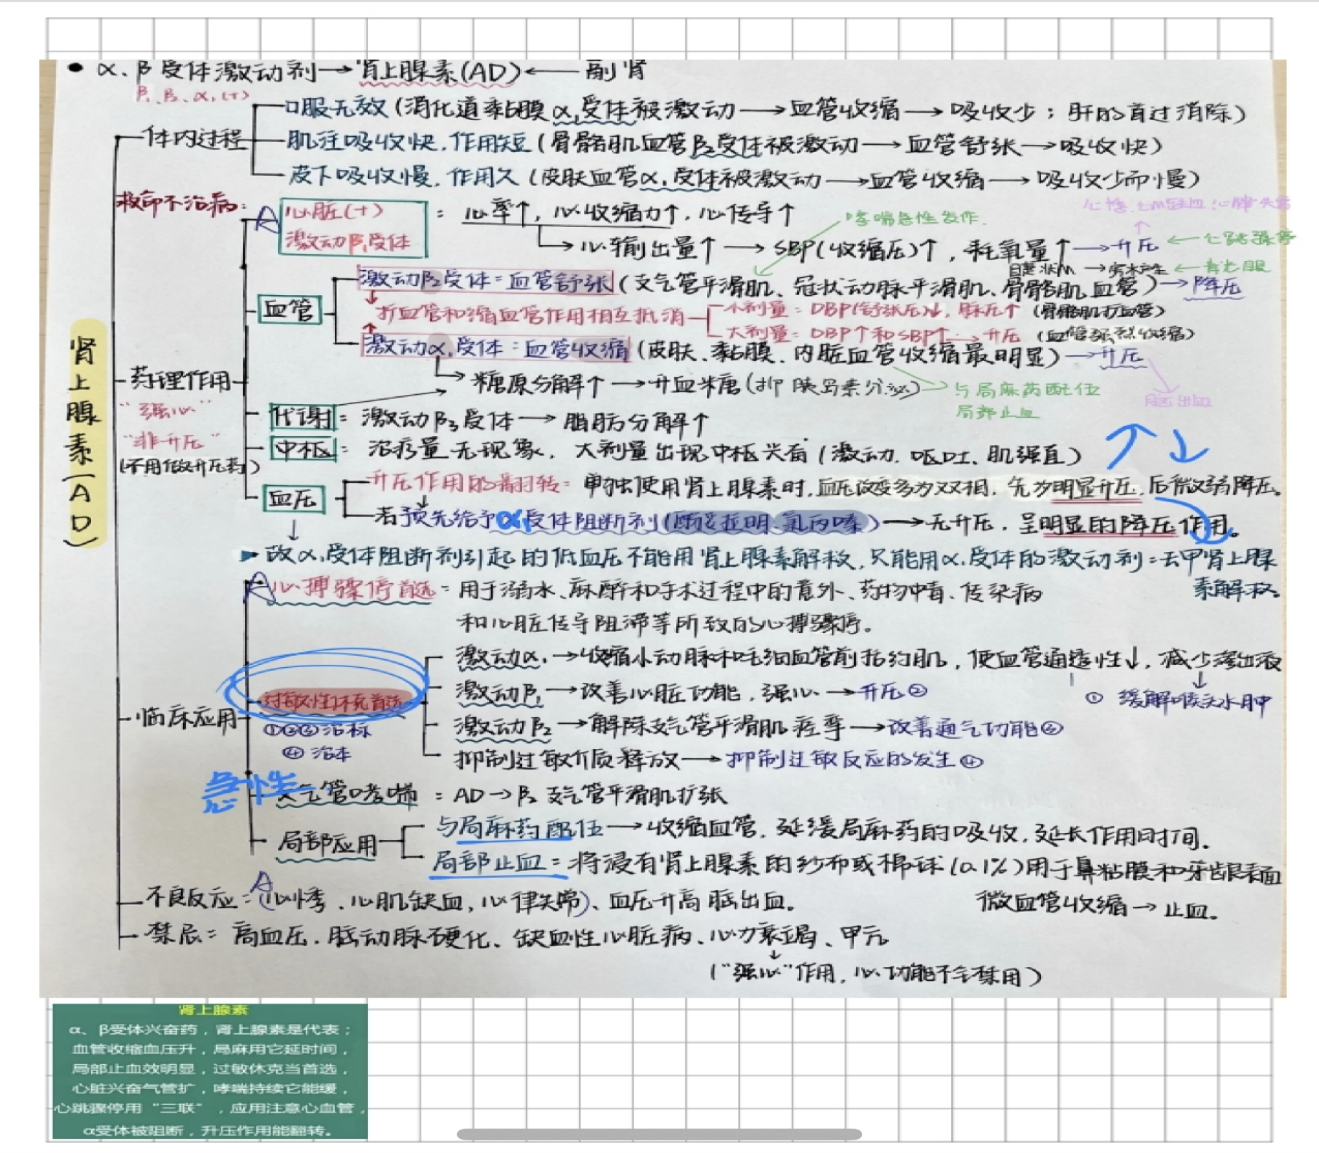 • α、β受体激动剂→肾上腺素(AD)←副肾
β₁、β₂、α₁(+)
口服无效(消化道黏膜α₁受体被激动→血管收缩→吸收少；肝的首过消除)
体内过程
肌注吸收快,作用短(骨骼肌血管β₂受体被激动→血管舒张→吸收快)
皮下吸收慢,作用久(皮肤血管α₁受体被激动→血管收缩→吸收少而慢)
救命不治病:
心脏(+)
激动β₁受体
= 心率↑,心收缩力↑,心传导↑
哮喘急性发作.
→心输出量↑→SBP(收缩压)↑,耗氧量↑→升压
血管
激动β₂受体=血管舒张(支气管平滑肌、冠状动脉平滑肌、骨骼肌血管)→降压
扩血管和缩血管作用相互抵消
小剂量:DBP(舒张压)↓,脉压↑(骨骼肌扩血管)
大剂量:DBP↑和SBP↑→升压
激动α₁受体:血管收缩(皮肤、黏膜、内脏血管收缩最明显)→升压
肾上腺素(AD)
药理作用
"强心"
"非升压"
(不用做升压药)
→糖原分解↑→升血糖(抑胰岛素分泌)
与局麻药配伍
局部止血
脑出血
代谢=激动β₃受体→脂肪分解↑
中枢:治疗量无现象,大剂量出现中枢兴奋(激动、呕吐、肌强直)
血压
升压作用的翻转:单独使用肾上腺素时,血压改变多为双相,先为明显升压,后微弱降压.
若预先给予α₁受体阻断剂(酚妥拉明、氯丙嗪)→无升压,呈明显的降压作用。
▶故α₁受体阻断剂引起的低血压不能用肾上腺素解救,只能用α₁受体的激动剂:去甲肾上腺
素解救.
心搏骤停首选=用于溺水、麻醉和手术过程中的意外、药物中毒、传染病
和心脏传导阻滞等所致的心搏骤停。
临床应用
过敏性休克首选
①②③治标
④治本
激动α₁→收缩小动脉和毛细血管前括约肌,使血管通透性↓,减少渗出液
① 缓解喉头水肿
激动β₁→改善心脏功能,强心→升压②
激动β₂→解除支气管平滑肌痉挛→改善通气功能③
抑制过敏介质释放→抑制过敏反应的发生④
急性
支气管哮喘:AD→β₂支气管平滑肌扩张
局部应用
与局麻药配伍→收缩血管,延缓局麻药的吸收,延长作用时间.
局部止血=将浸有肾上腺素的纱布或棉球(0.1%)用于鼻粘膜和牙龈表面
微血管收缩→止血.
不良反应:(心悸、心肌缺血,心律失常)、血压升高脑出血.
禁忌=高血压.脑动脉硬化、缺血性心脏病、心力衰竭、甲亢
("强心"作用,心功能不全禁用)
肾上腺素
α、β受体兴奋药，肾上腺素是代表；
血管收缩血压升，局麻用它延时间，
局部止血效明显，过敏休克当首选，
心脏兴奋气管扩，哮喘持续它能缓，
心跳骤停用“三联”，应用注意心血管，
α受体被阻断，升压作用能翻转。